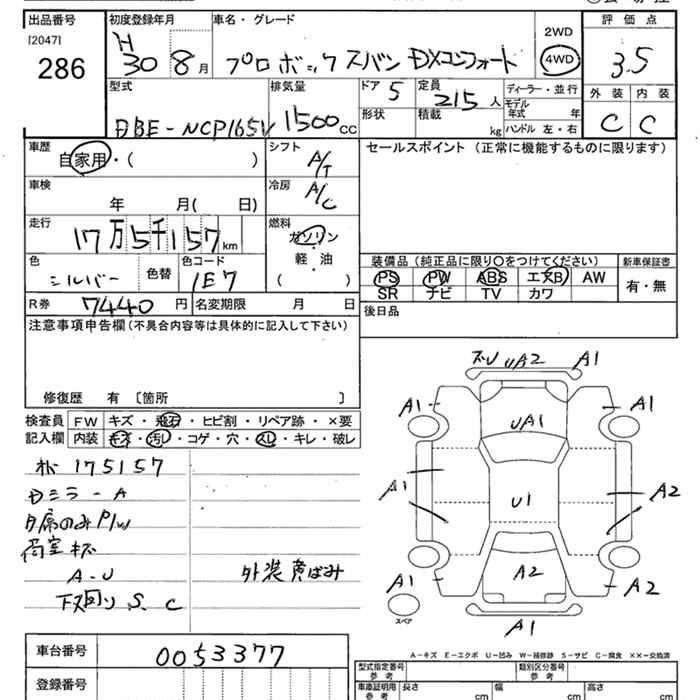 出品番号
[2047]
286
初度登録年月
H
30 8月
車名・グレード
プロボックスバン DXコンフォート
2WD
4WD
評価点
3.5
外装 内装
C C
型式
DBE-NCP165V
排気量
1500CC
ドア 5
形状
定員
215人
積載
kg
ディーラー・並行
モデル年式 年
ハンドル 左・右
車歴
自家用・( )
シフト
A/T
セールスポイント (正常に機能するものに限ります)
車検
年 月( 日)
冷房
A/C
走行
17万5千157km
燃料
ガソリン
軽・油
( )
色
シルバー
色替
色コード
1E7
装備品 (純正品に限り〇をつけてください)
PS PW ABS エアB AW
SR ナビ TV カワ
新車保証書
有・無
R券 7440円
名変期限 月 日
後日品
注意事項申告欄(不具合内容等は具体的に記入して下さい)
修復歴 有 〔箇所 〕
検査員記入欄
FW キズ・飛石・ヒビ割・リペア跡・×要
内装 キズ・汚レ・コゲ・穴・スレ・キレ・破レ
175157
Dミラ-A
席のみP/W
荷室キズ
A-U
下回りS、C
外装黄ばみ
UA2
A1
A1
A1
UA1
A1
U1
A2
A1
A2
A2
A1
スペア
A-キズ E-エクボ U-凹み W-補修跡 S-サビ C-腐食 ××-交換済
車台番号
0053377
登録番号
型式指定番号
参考
類別区分番号
参考
車庫証明用
参考
長さ cm
幅 cm
高さ cm